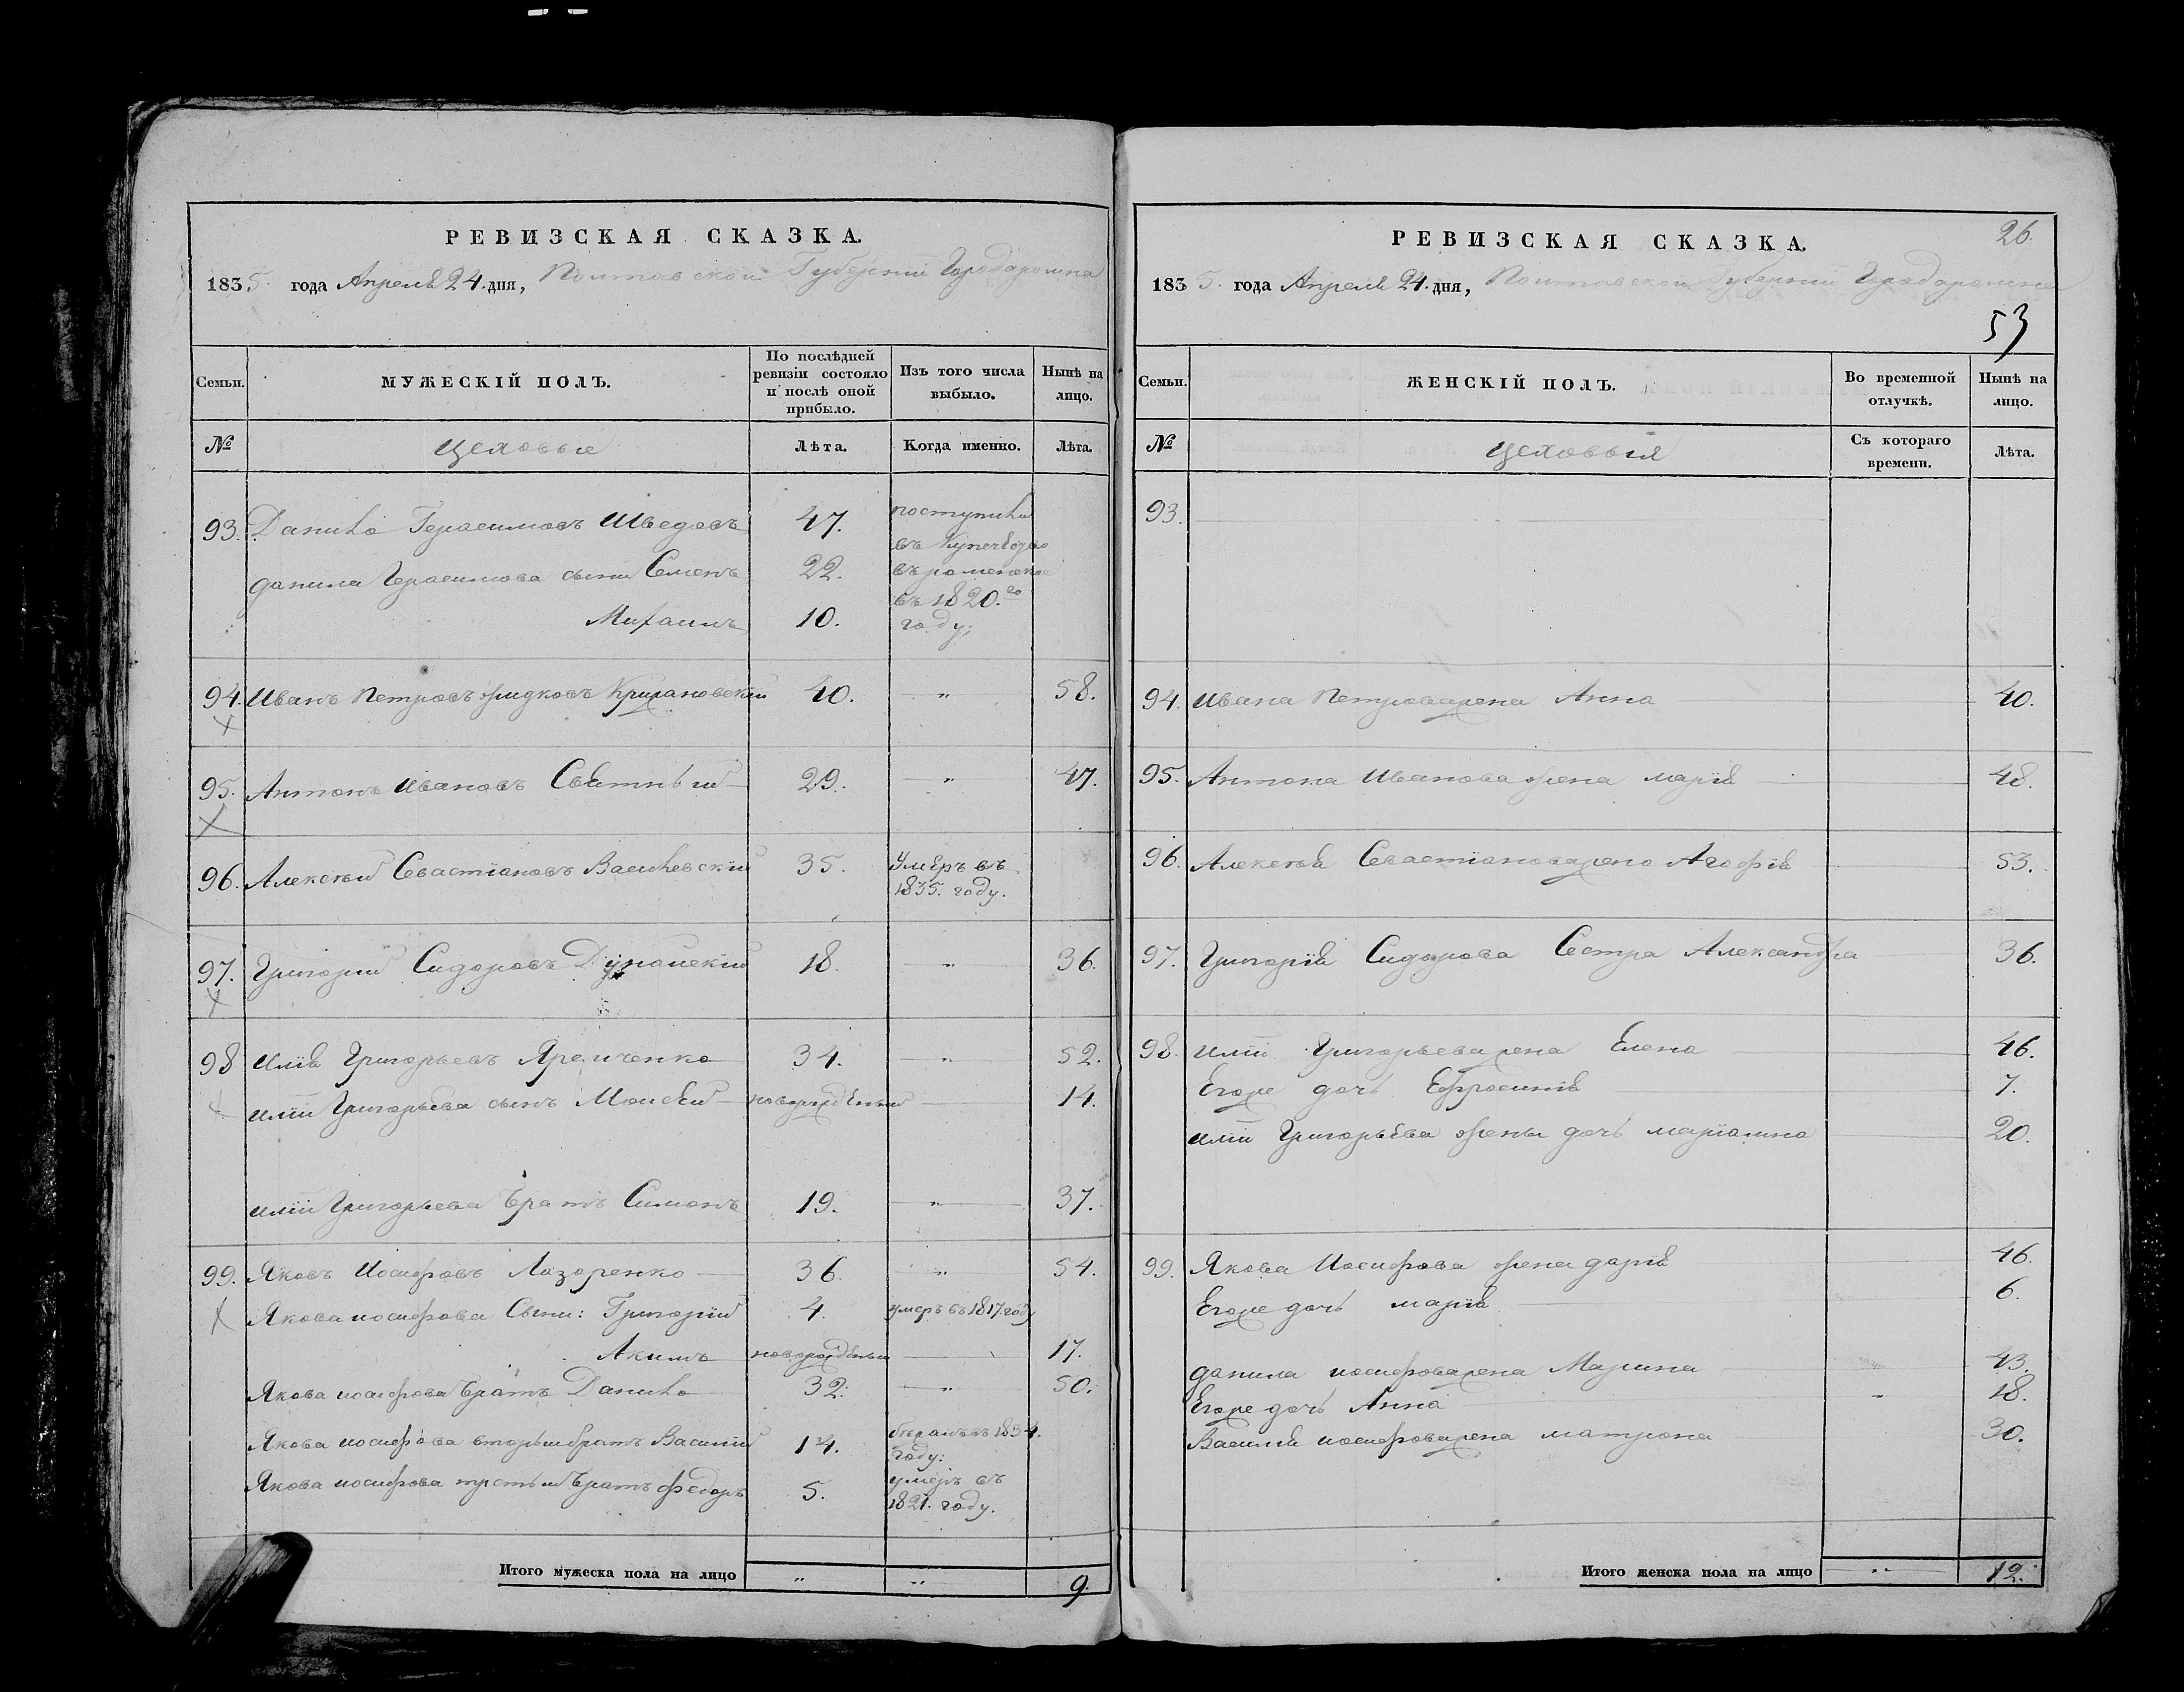 РЕВИЗСКАЯ СКАЗКА.
1835. года Апреля 24. дня, Полтавской Губерніи Города Ромна
Семьи.
МУЖЕСКІЙ ПОЛЪ.
По послѣдней ревизіи состояло и послѣ оной прибыло.
Изъ того числа выбыло.
Нынѣ на лицо.
№
Цеховые
Лѣта.
Когда именно.
Лѣта.
93. Данило Герасимовъ Шведовъ 47. поступили
въ Купечество
данила Герасимова сыны Семенъ 22. въ роменское
въ 1820.го
Михаилъ 10. году;
94. Иванъ Петровъ Крижановскій 40. „ 58.
95. Антонъ Ивановъ 29. „ 47.
96. Алексѣй Севастіановъ Василевскій 35. умеръ въ
1835. году.
97. Григорій Сидоровъ Дунайскій 18. „ 36.
98 Илія Григорьевъ Яременко 34. „ 52.
иліи Григорьева сынъ Моисей новорожденный 14.
иліи Григорьева братъ Симонъ 19. „ 37.
99. Яковъ Иосифовъ Лазаренко 36. „ 54.
Якова иосифова Сыны: Григорій 4. умеръ въ 1817. году
Акимъ новорожденный 17.
Якова иосифова братъ Данило 32. „ 50.
Якова иосифова вторый братъ Василій 14. въ 1834.
году.
Якова иосифова третый братъ федоръ 5. умеръ въ
1821. году.
Итого мужеска пола на лицо „ „ 9.
26.
РЕВИЗСКАЯ СКАЗКА.
1835. года Апреля 24. дня, Полтавской Губерніи Города Ромна
53
Семьи.
ЖЕНСКІЙ ПОЛЪ.
Во временной отлучкѣ.
Нынѣ на лицо.
№
Цеховыя
Съ котораго времени.
Лѣта.
93.
94. Ивана Петрова жена Анна 40.
95. Антона Иванова жена марія 48.
96. Алексѣя Севастіанова жена Агафія 53.
97. Григорія Сидорова Сестра Александра 36.
98. иліи Григорьева жена Елена 46.
Егоже дочь Ефросинія 7.
иліи Григорьева жены дочь маріанна 20.
99. Якова Иосифова жена дарія 46.
Егоже дочь марія 6.
данила иосифова жена Марина 43.
Егоже дочь Анна 18.
Василія иосифова жена матрона 30.
Итого женска пола на лицо „ 12.